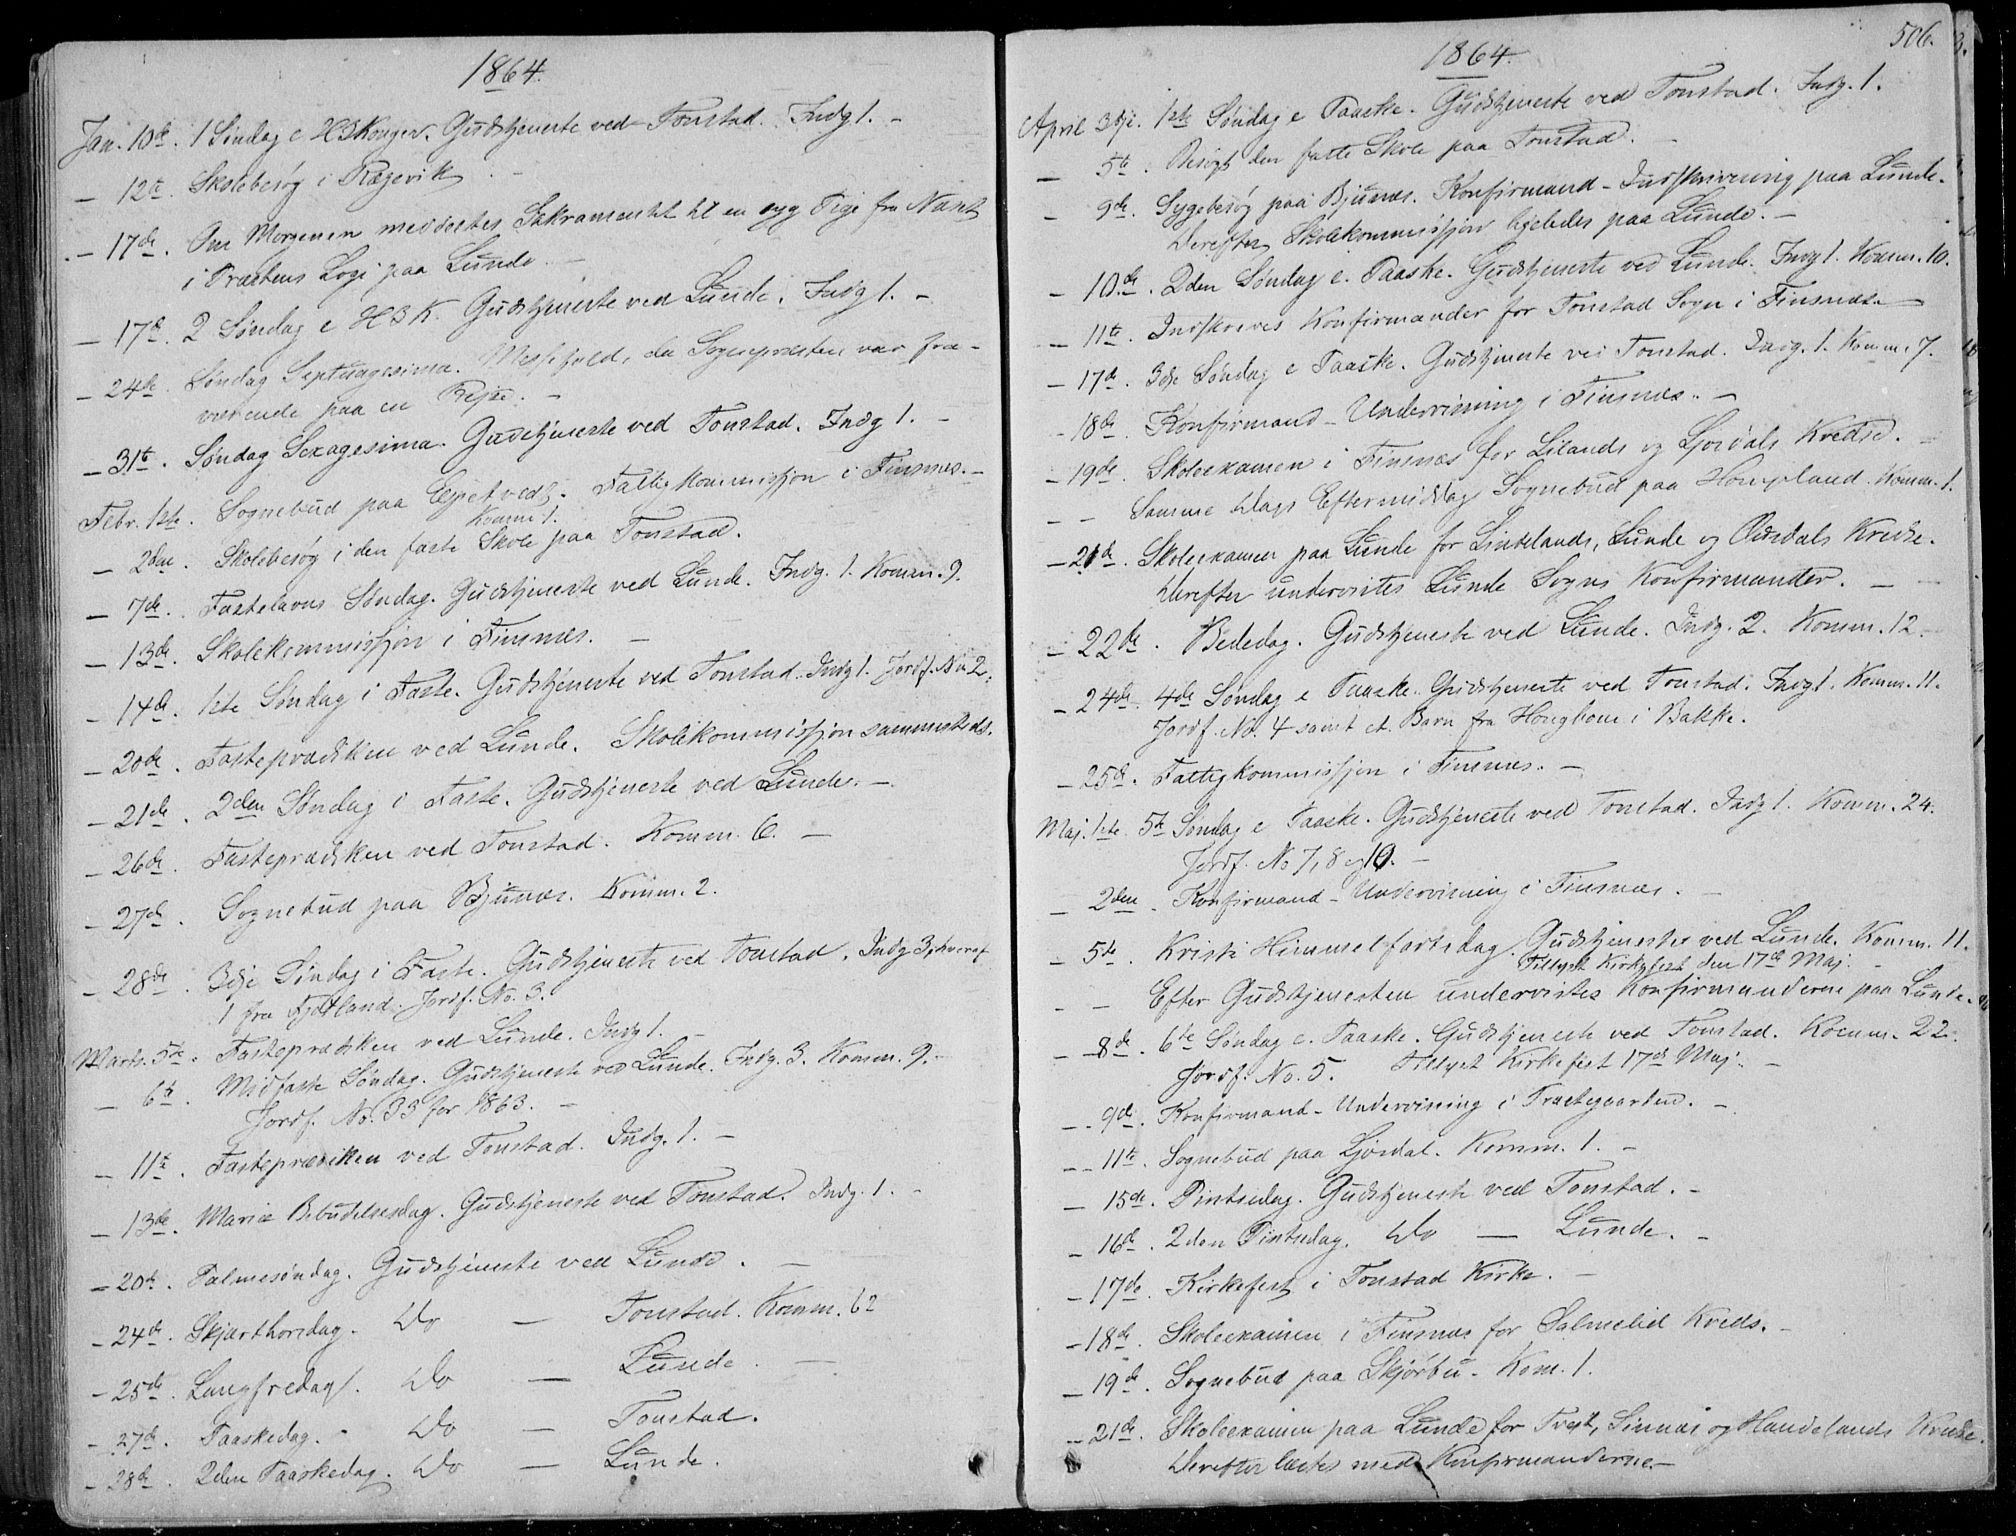 1864.
Jan. 10de. 1 Søndag e H3Konger. Gudstjeneste ved Tonstad. Indg 1. –
– 12te. Skolebesøg i Regevik. –
– 17de. Om Morgenen meddeeltes Sakramentet til en syg Pige fra
i Præstens Logi paa Lunde. –
– 17de. 2 Søndag e H3K. Gudstjeneste ved Lunde. Indg 1. –
– 24de. Søndag Septuagesima. Messefald, da Sognepræsten var fra-
værende paa en Rejse. –
– 31te. Søndag Sexagesima. Gudstjeneste ved Tonstad. Indg 1. –
Febr. 1ste. Sognebud paa Fattigkommissjon i Finsnes. –
Komm 1.
– 2den. Skolebesøg i den faste Skole paa Tonstad.
– 7de. Fastelavns Søndag. Gudstjeneste ved Lunde. Indg. 1. Komm. 9.
– 13de. Skolekommissjon i Finsnes. –
– 14de. 1ste Søndag i Faste. Gudstjeneste ved Tonstad. Indg 1. Jordf. No 2.
– 20de. Fasteprædiken ved Lunde. Skolekommissjon sammesteds.
– 21de. 2den Søndag i Faste. Gudstjeneste ved Lunde. –
– 26de. Fasteprædiken ved Tonstad. Komm. 6. –
– 27de. Sognebud paa Bjunes. Komm. 2.
– 28de. 3dje Søndag i Faste. Gudstjeneste ved Tonstad. Indg 3, hvoraf
1 fra Fjotland. Jordf. No. 3.
Marts. 5te. Fasteprædiken ved Lunde. Indg 1. –
– 6te. Midfaste Søndag. Gudstjeneste ved Lunde. Indg. 3. Komm. 9. –
Jordf. No. 33 for 1863. –
– 11te. Fasteprædiken ved Tonstad. Indg. 1. –
– 13de. Mariæ Bebudelsesdag. Gudstjeneste ved Tonstad. Indg. 1. –
– 20de. Palmesøndag. Gudstjeneste ved Lunde. –
– 24de. Skjærthorsdag. Do – Tonstad. Komm. 62
– 25de. Langfredag. Do – Lunde. –
– 27de. Paaskedag. Do – Tonstad.
– 28de. 2den Paaskedag. Do – Lunde.
506.
1864.
April 3dje. 1ste Søndag e Paaske. Gudstjeneste ved Tonstad. Indg. 1.
– 5te. Besøgt den faste Skole paa Tonstad. –
– 9de. Sygebesøg paa Bjunes. Konfirmand-Indskrivning paa Lunde.
Derefter Skolekommissjon ligeledes paa Lunde. –
– 10de. 2den Søndag e. Paaske. Gudstjeneste ved Lunde. Indg 1. Komm. 10.
– 11te. Indskreves Konfirmander for Tonstad Sogn i Finsnes. –
– 17de. 3dje Søndag e Paaske. Gudstjeneste ved Tonstad. Indg. 1. Komm. 7.
– 18de. Konfirmand-Undervisning i Finsnes. –
– 19de. Skoleexamen i Finsnes for Lilands og Ljosdals Kredse. –
– – Samme Dags Eftermiddag Sognebud paa Hompland. Komm. 1.
– 21de. Skoleexamen paa Lunde for Lindelands, Lunde og Ousdals Kredse.
Derefter undervistes Lunde Sogns Konfirmander. –
– 22de. Bededag. Gudstjeneste ved Lunde. Indg. 2. Komm. 12.
– 24de. 4de Søndag e Paaske. Gudstjeneste ved Tonstad. Indg 1. Komm. 11.
Jordf. No. 4 samt et Barn fra Houghom i Bakke.
– 25de. Fattigkommissjon i Finsnes. –
Maj. 1ste. 5te Søndag e Paaske. Gudstjeneste ved Tonstad. Indg 1. Komm. 24.
Jordf. No 7, 8 og 10. –
– 2den. Konfirmand-Undervisning i Finsnes. –
– 5te. Kristi Himmelfartsdag. Gudstjeneste ved Lunde. Komm. 11.
Tillyst Kirkefest den 17de Maj. –
– – Efter Gudstjenesten undervistes Konfirmanderne paa Lunde.
– 8de. 6te Søndag e. Paaske. Gudstjeneste ved Tonstad. Komm. 22.
Jordf. No. 5. Tillyst Kirkefest 17de Maj. –
– 9de. Konfirmand-Undervisning i Præstegaarden. –
– 11te. Sognebud paa Ljosdal. Komm. 1. –
– 15de. Pintsedag. Gudstjeneste ved Tonstad. –
– 16de. 2den Pintsedag. Do – Lunde. –
– 17de. Kirkefest i Tonstad Kirke. –
– 18de. Skoleexamen i Finsnes for Salmelid Kreds. –
– 19de. Sognebud paa Skjorbu. Kom. 1.
– 21de. Skoleexamen paa Lunde for Sinnæs og Handelands Kredse.
Derefter læstes med Konfirmanderne. –